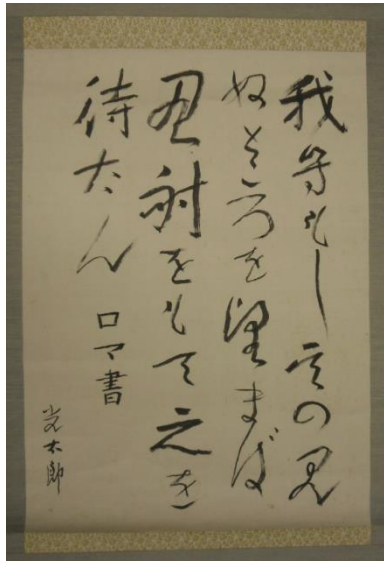 我等もし其の見
ぬところを望まば
忍耐をもて之を
待たん
ロマ書
光太郎